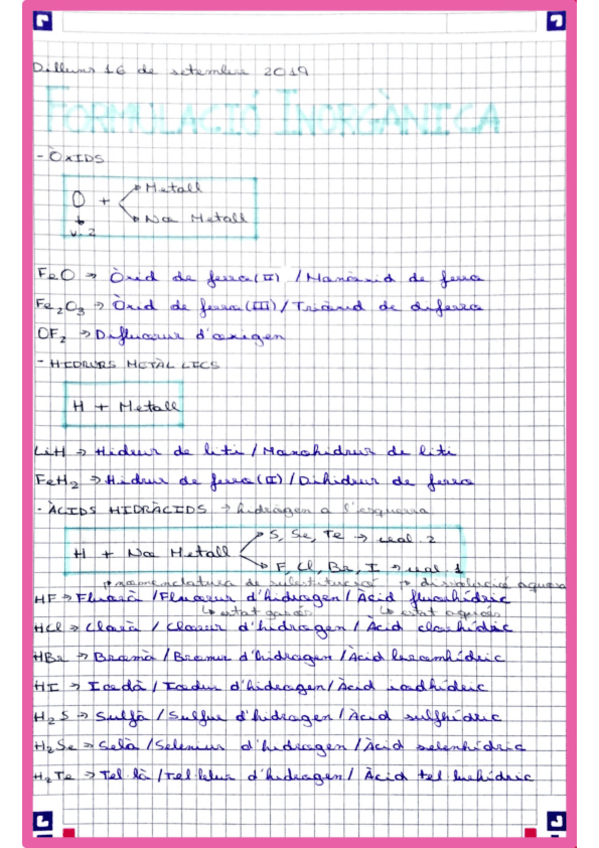 Dilluns 16 de setembre 2019
FORMULACIÓ INORGÀNICA
- ÒXIDS
O + Metall
No Metall
v. 2
FeO → Òxid de ferro (II) / Monòxid de ferro
Fe₂O₃ → Òxid de ferro (III) / Triòxid de diferro
OF₂ → Difluorur d'oxigen
- HIDRURS METÀL·LICS
H + Metall
LiH → Hidrur de liti / Monohidrur de liti
FeH₂ → Hidrur de ferro (II) / Dihidrur de ferro
- ÀCIDS HIDRÀCIDS → hidrògen a l'esquerra
S, Se, Te → val. 2
H + No Metall
F, Cl, Br, I → val. 1
nomenclatura de substitució dissolució aquosa
HF → Fluorà / Fluorur d'hidrogen / Àcid fluorhídric
estat gasós estat aquós
HCl → Clorà / Clorur d'hidrogen / Àcid clorhídric
HBr → Bromà / Bromur d'hidrogen / Àcid bromhídric
HI → Iodà / Iodur d'hidrogen / Àcid iodhídric
H₂S → Sulfà / Sulfur d'hidrogen / Àcid sulfhídric
H₂Se → Selà / Seleniur d'hidrogen / Àcid selenhídric
H₂Te → Tel·là / Tel·lur d'hidrogen / Àcid tel·lurhídric